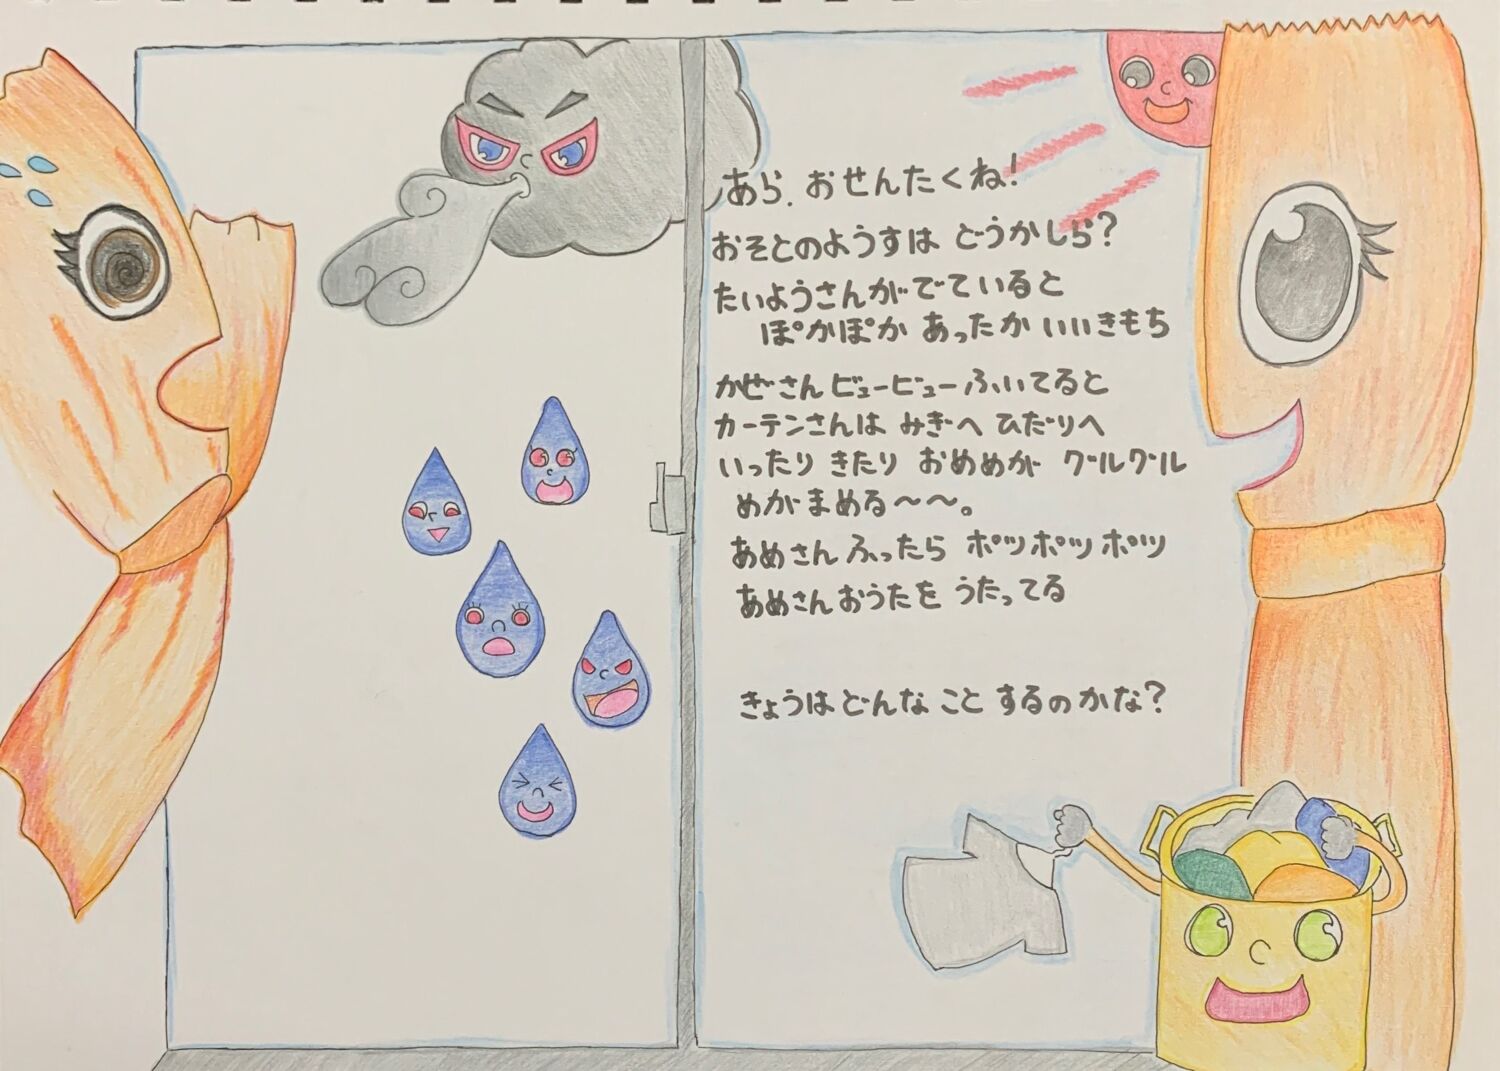 あら、おせんたくね!
おそとのようすは どうかしら?
たいようさんがでていると
ぽかぽか あったか いいきもち
かぜさん ビュービュー ふいてると
カーテンさんは みぎへ ひだりへ
いったり きたり おめめが グルグル
めがまめる〜〜。
あめさん ふったら ポツポツポツ
あめさん おうたを うたってる
きょうは どんなこと するのかな?